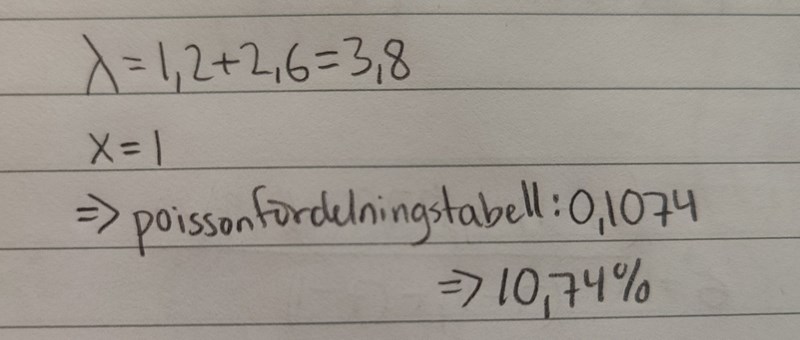 λ=1,2+2,6=3,8
x=1
=> poissonfördelningstabell: 0,1074
=> 10,74%